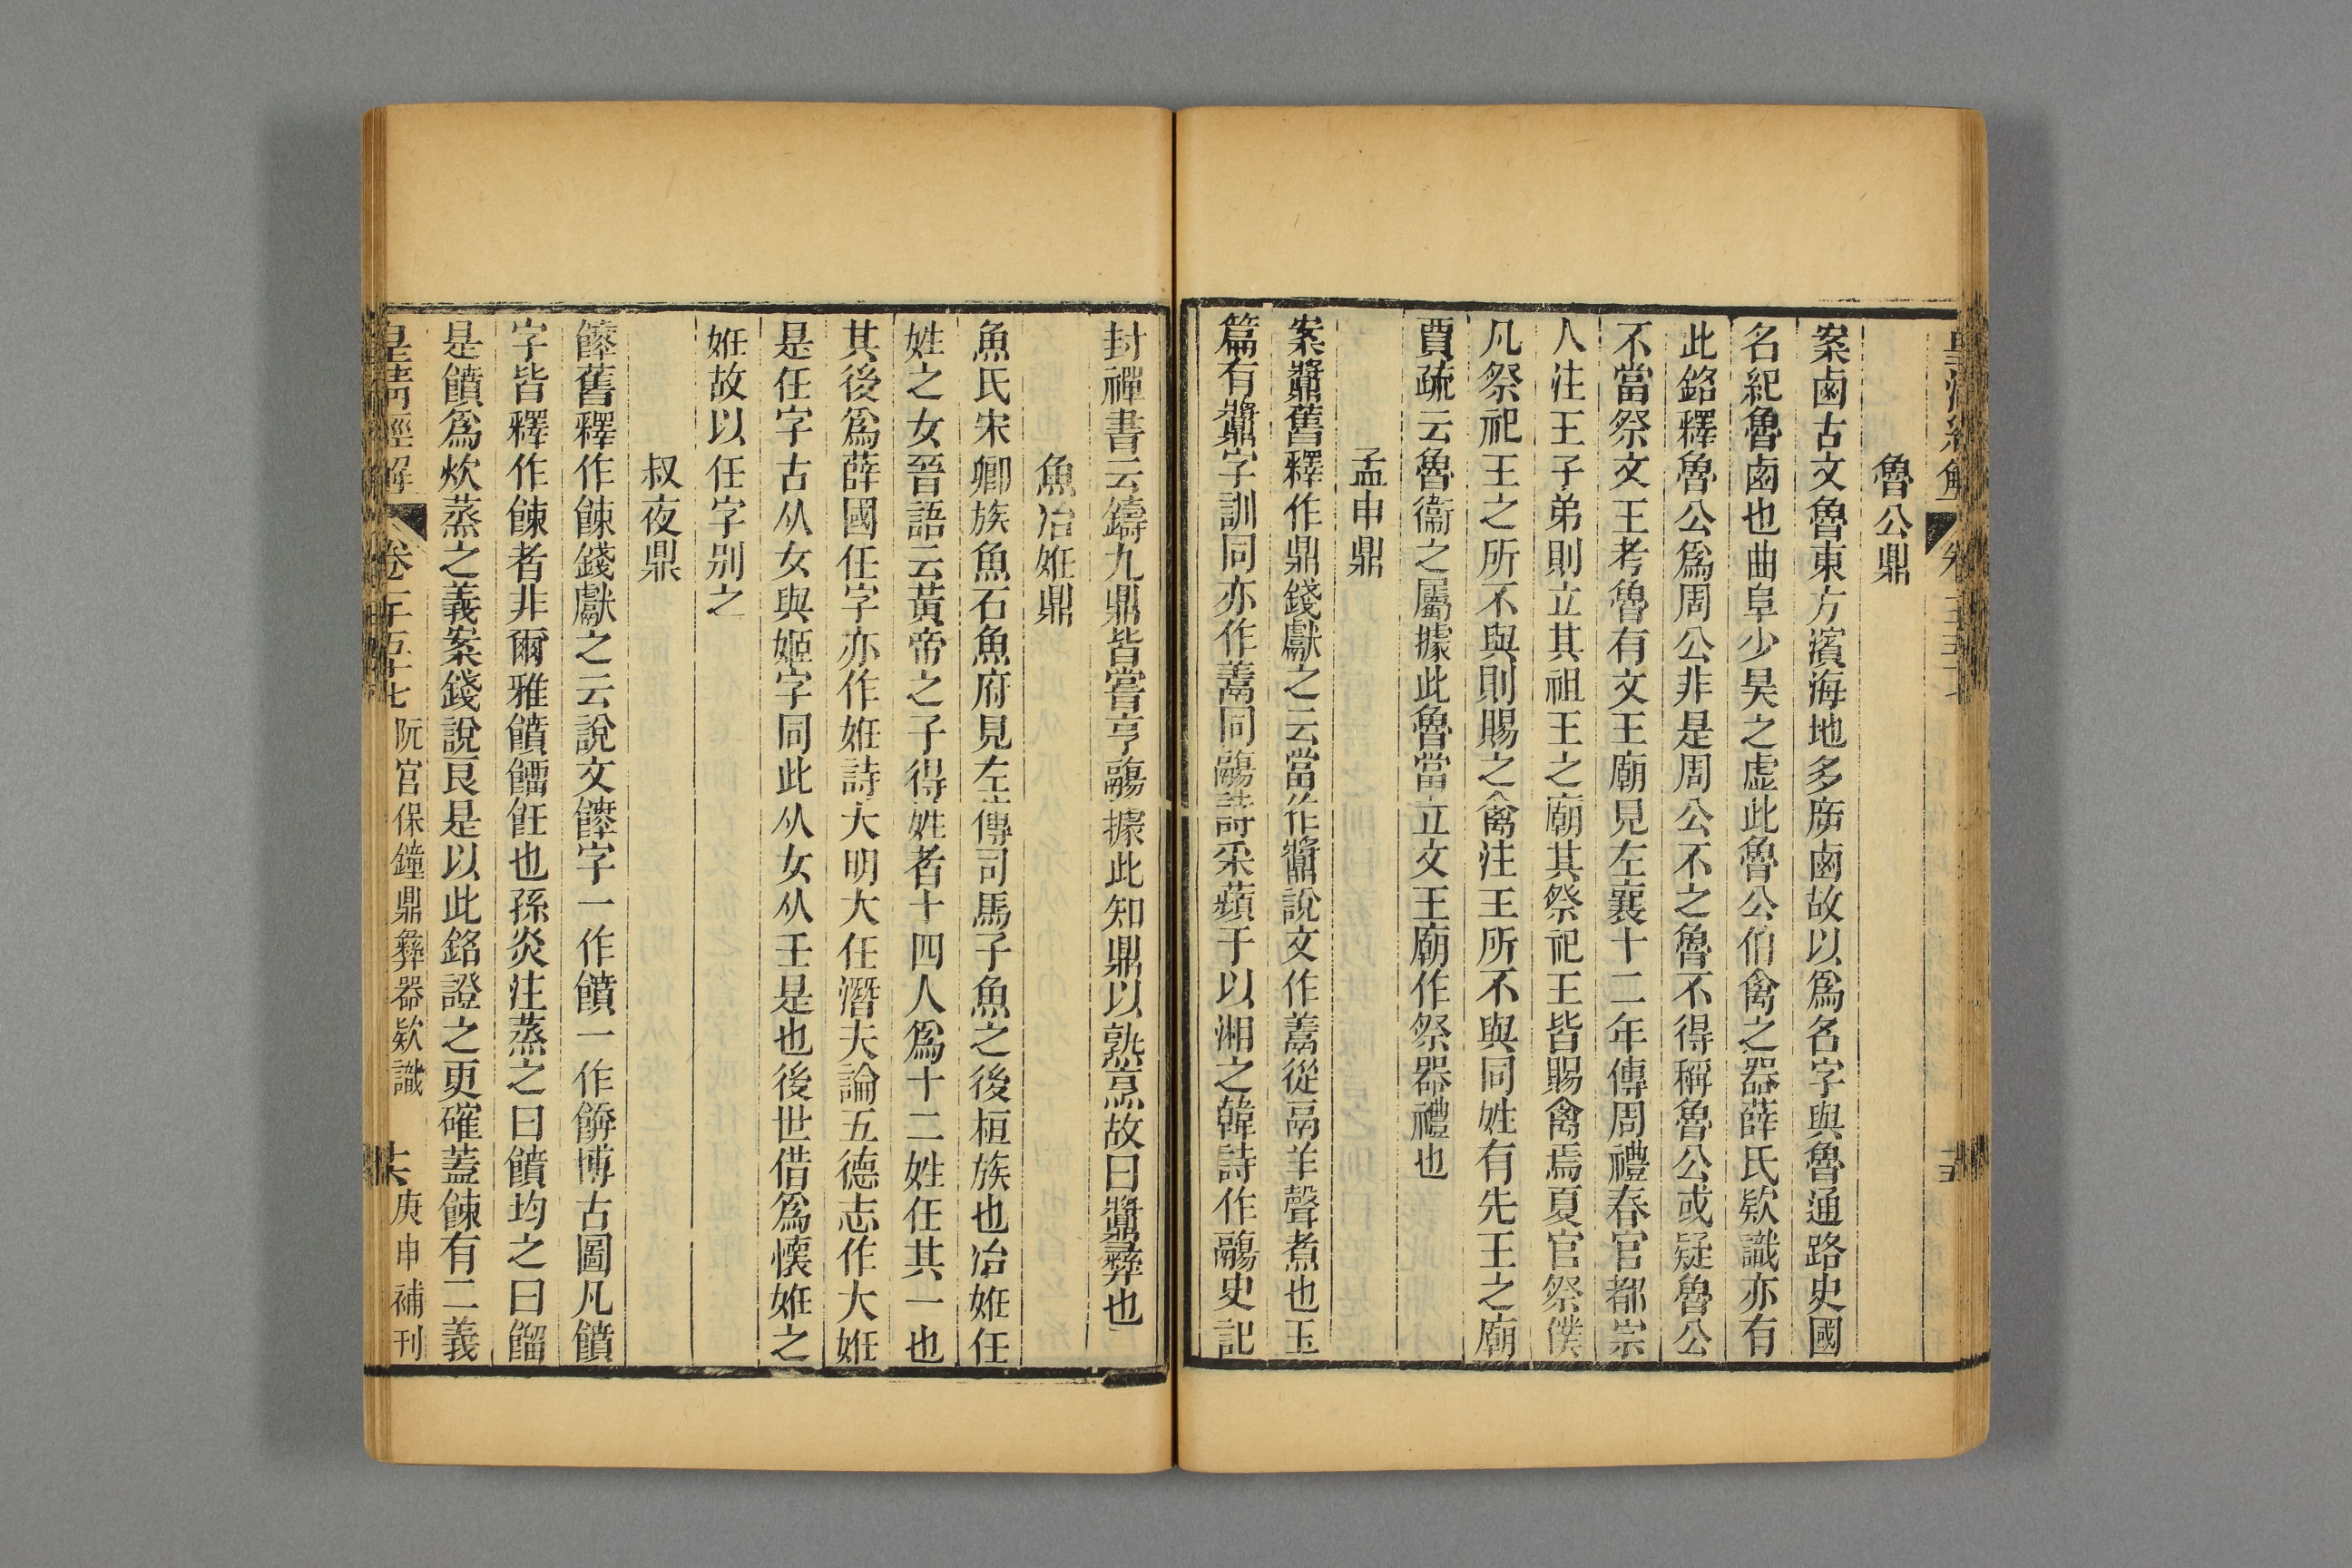 魯公鼎
案鹵古文魯東方濱海地多㡿鹵故以爲名字與魯通路史國
名紀魯鹵也曲阜少昊之虛此魯公伯禽之器薛氏欵識亦有
此銘釋魯公爲周公非是周公不之魯不得稱魯公或疑魯公
不當祭文王考魯有文王廟見左襄十二年傳周禮春官都宗
人注王子弟則立其祖王之廟其祭祀王皆賜禽焉夏官祭僕
凡祭祀王之所不與則賜之禽注王所不與同姓有先王之廟
賈疏云魯衞之屬據此魯當立文王廟作祭器禮也
孟申鼎
案鷊舊釋作鼎錢獻之云當作說文作鬺從鬲羊聲煮也玉
篇有字訓同亦作鬺同鬺詩采蘋于以湘之韓詩作鬺史記
封禪書云鑄九鼎皆嘗亨鬺據此知鼎以熟烹故曰彝也
魚冶妊鼎
魚氏宋卿族魚石魚府見左傳司馬子魚之後桓族也冶妊任
姓之女晉語云黃帝之子得姓者十四人爲十二姓任其一也
其後爲薛國任字亦作妊詩大明大任潛夫論五德志作大妊
是任字古从女與姬字同此从女从壬是也後世借爲懷妊之
妊故以任字别之
叔夜鼎
饙舊釋作餗錢獻之云說文饙字一作饙一作餴博古圖凡饙
字皆釋作餗者非爾雅饙餾飪也孫炎注蒸之曰饙均之曰餾
是饙爲炊蒸之義案錢說良是以此銘證之更確蓋餗有二義
皇清經解 卷一千五十七 阮宫保鐘鼎彝器欵識 庚申補刊